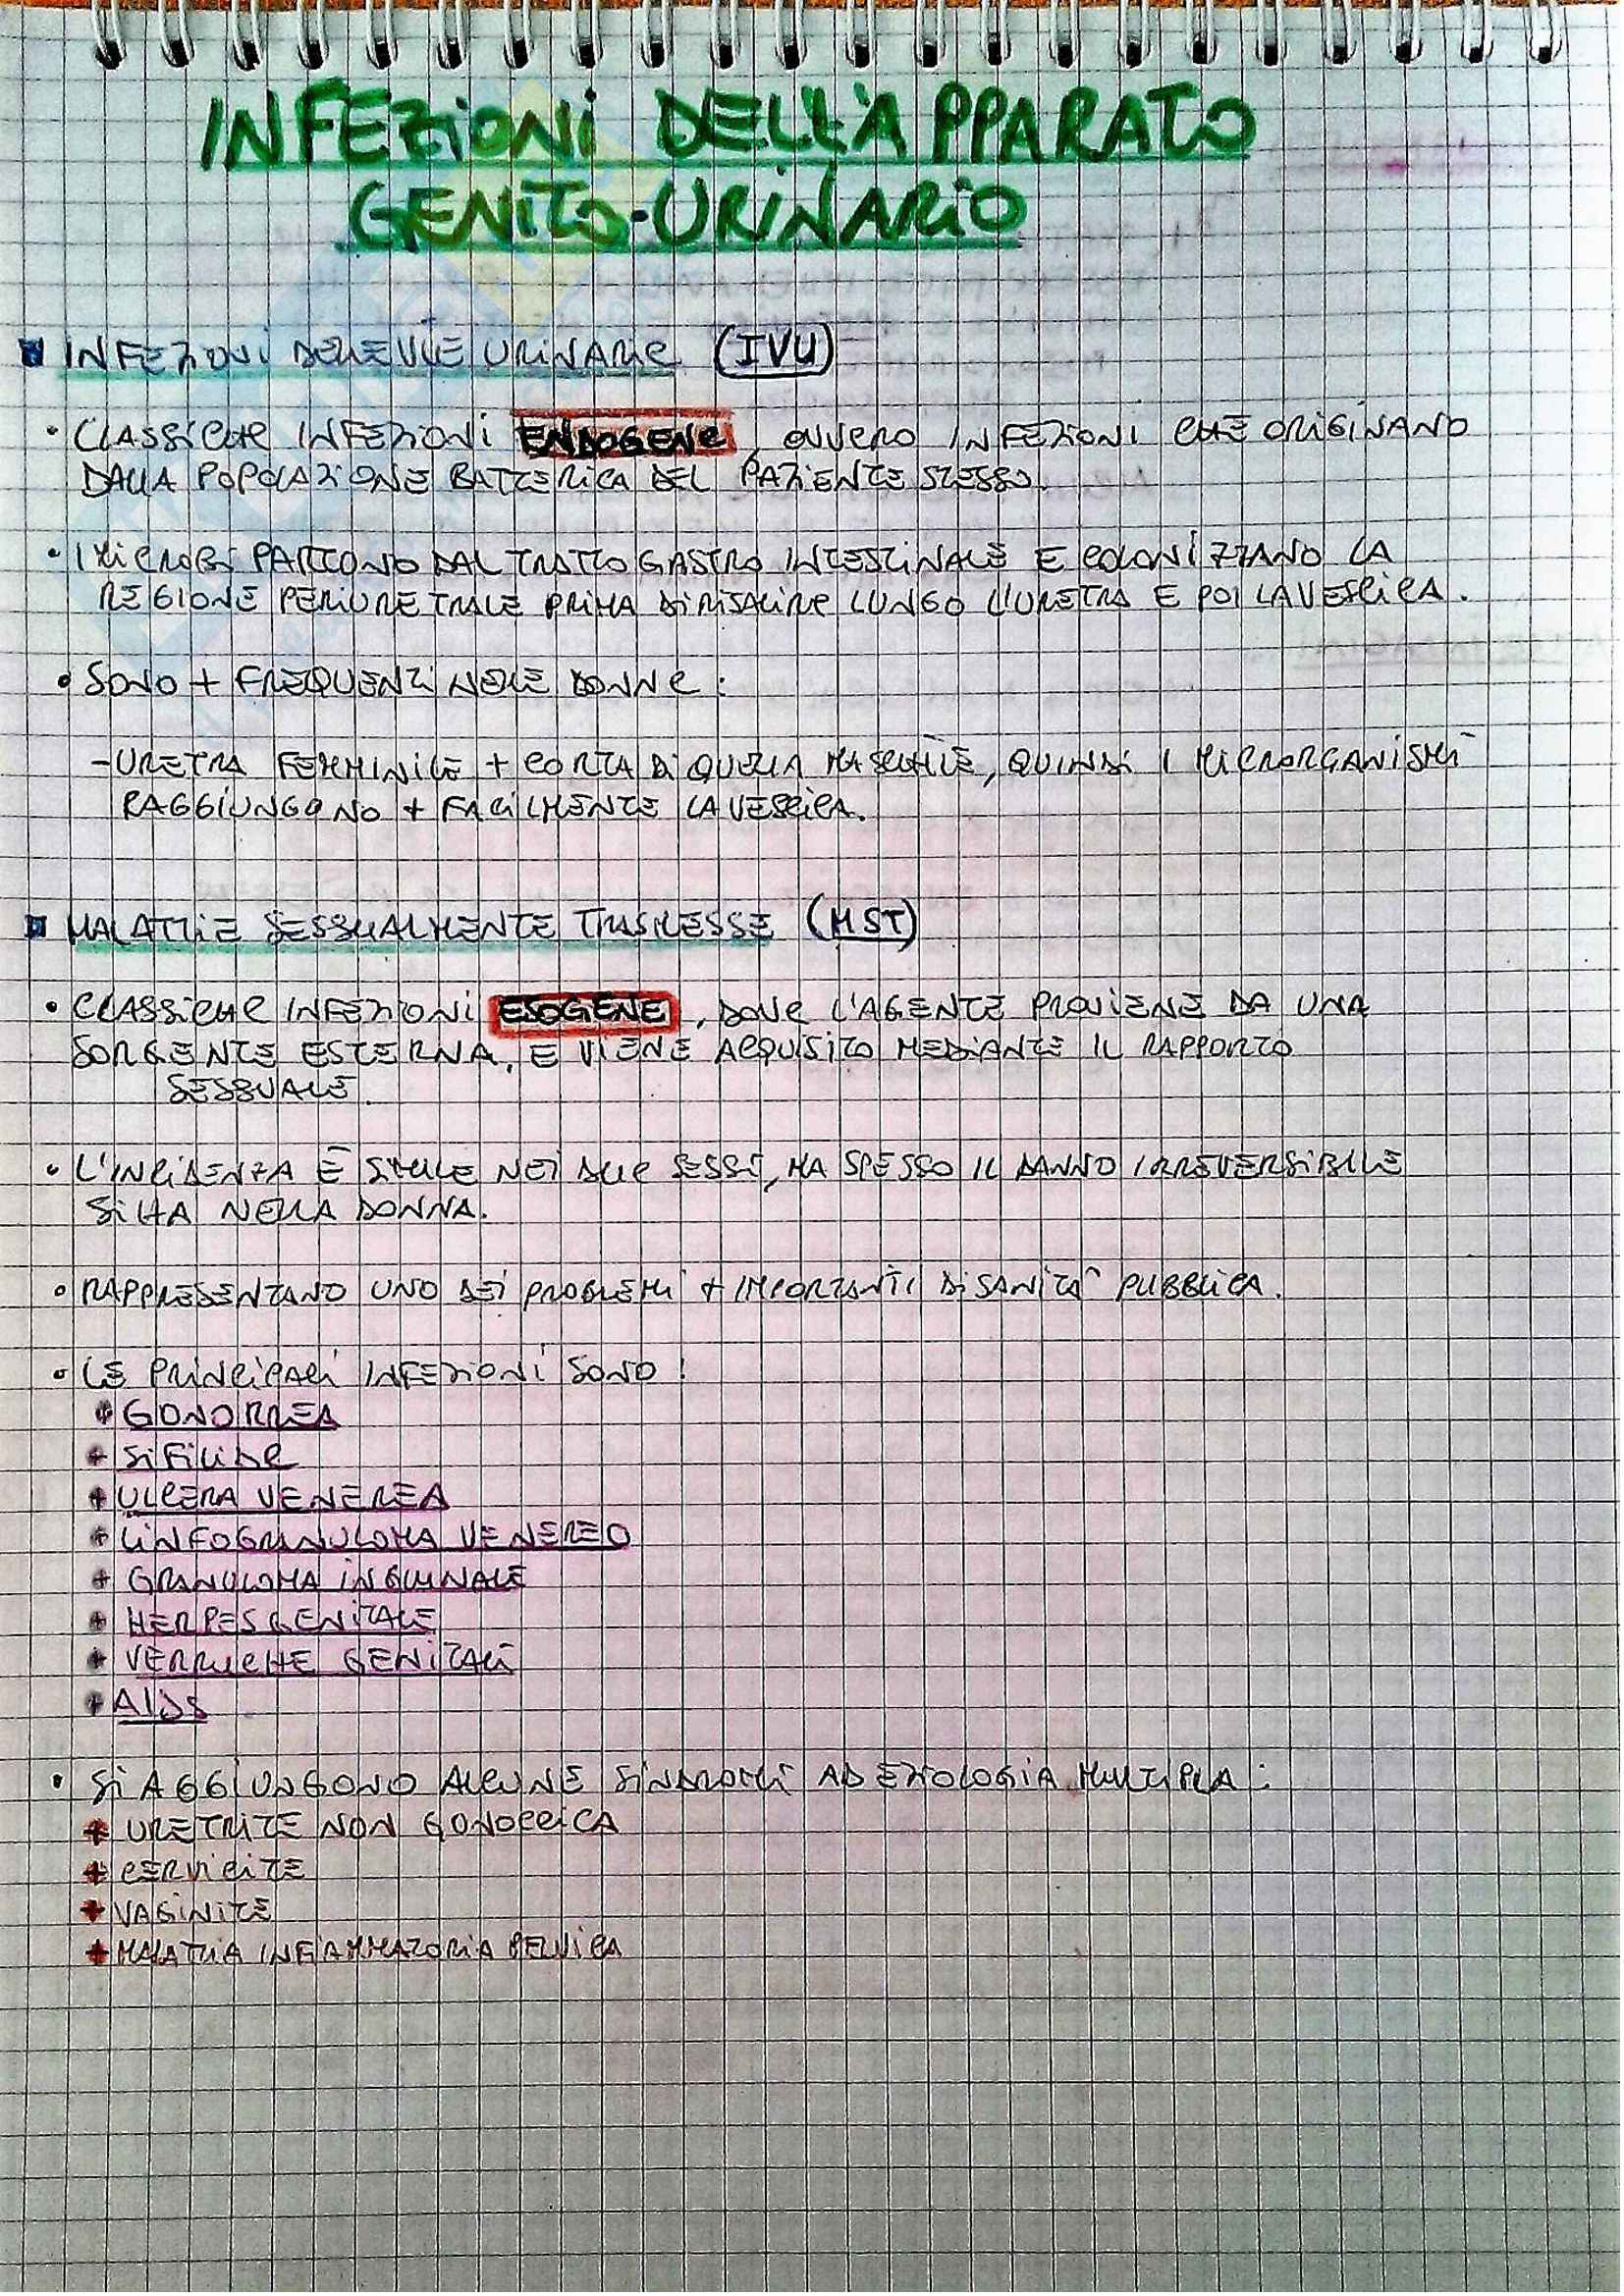 INFEZIONI DELL'APPARATO
GENITO-URINARIO
INFEZIONI DELLE VIE URINARIE (IVU)
• CLASSICHE INFEZIONI ENDOGENE, OVVERO INFEZIONI CHE ORIGINANO
DALLA POPOLAZIONE BATTERICA DEL PAZIENTE STESSO.
• I MICROBI PARTONO DAL TRATTO GASTRO INTESTINALE E COLONIZZANO LA
REGIONE PERIURETRALE PRIMA DI RISALIRE LUNGO L'URETRA E POI LA VESCICA.
• SONO + FREQUENTI NELLE DONNE:
- URETRA FEMMINILE + CORTA DI QUELLA MASCHILE, QUINDI I MICRORGANISMI
RAGGIUNGONO + FACILMENTE LA VESCICA.
MALATTIE SESSUALMENTE TRASMESSE (MST)
• CLASSICHE INFEZIONI ESOGENE, DOVE L'AGENTE PROVIENE DA UNA
SORGENTE ESTERNA, E VIENE ACQUISITO MEDIANTE IL RAPPORTO
SESSUALE.
• L'INCIDENZA È SIMILE NEI DUE SESSI, MA SPESSO IL DANNO IRREVERSIBILE
SI HA NELLA DONNA.
• RAPPRESENTANO UNO DEI PROBLEMI + IMPORTANTI DI SANITÀ PUBBLICA.
• LE PRINCIPALI INFEZIONI SONO:
+ GONORREA
+ SIFILIDE
+ ULCERA VENEREA
+ LINFOGRANULOMA VENEREO
+ GRANULOMA INGUINALE
+ HERPES GENITALE
+ VERRUCHE GENITALI
+ AIDS
• SI AGGIUNGONO ALCUNE SINDROMI AD EZIOLOGIA MULTIPLA:
+ URETRITE NON GONOCCICA
+ CERVICITE
+ VAGINITE
+ MALATTIA INFIAMMATORIA PELVICA